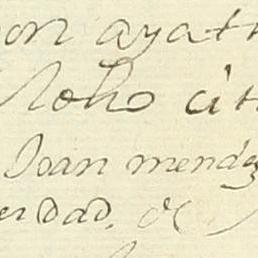 on ayat
Noho cit
Joan mendez
erdad. &